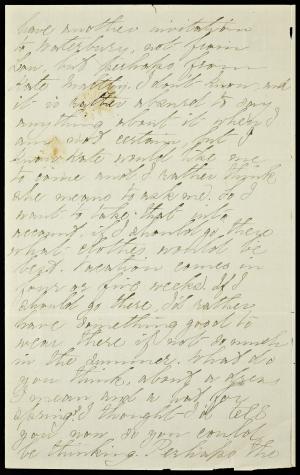 have another invitation
to Waterbury, not from
you, but perhaps from
Kate Mattoy, I don't know, and
it is rather absurd to say
anything about it when I
am not certain, but I
know Kate would like me
to come and I rather think
she means to ask me. So I
want to take that into
account, if I should go there
what clothes would be
best. Vacation comes in
four or five weeks. If I
should go there, I'd rather
have something good to
wear there if not so much
in the summer. What do
you think, about a dress
I mean and a hat for
spring? I thought I'd tell
you now so you could
be thinking. Perhaps the